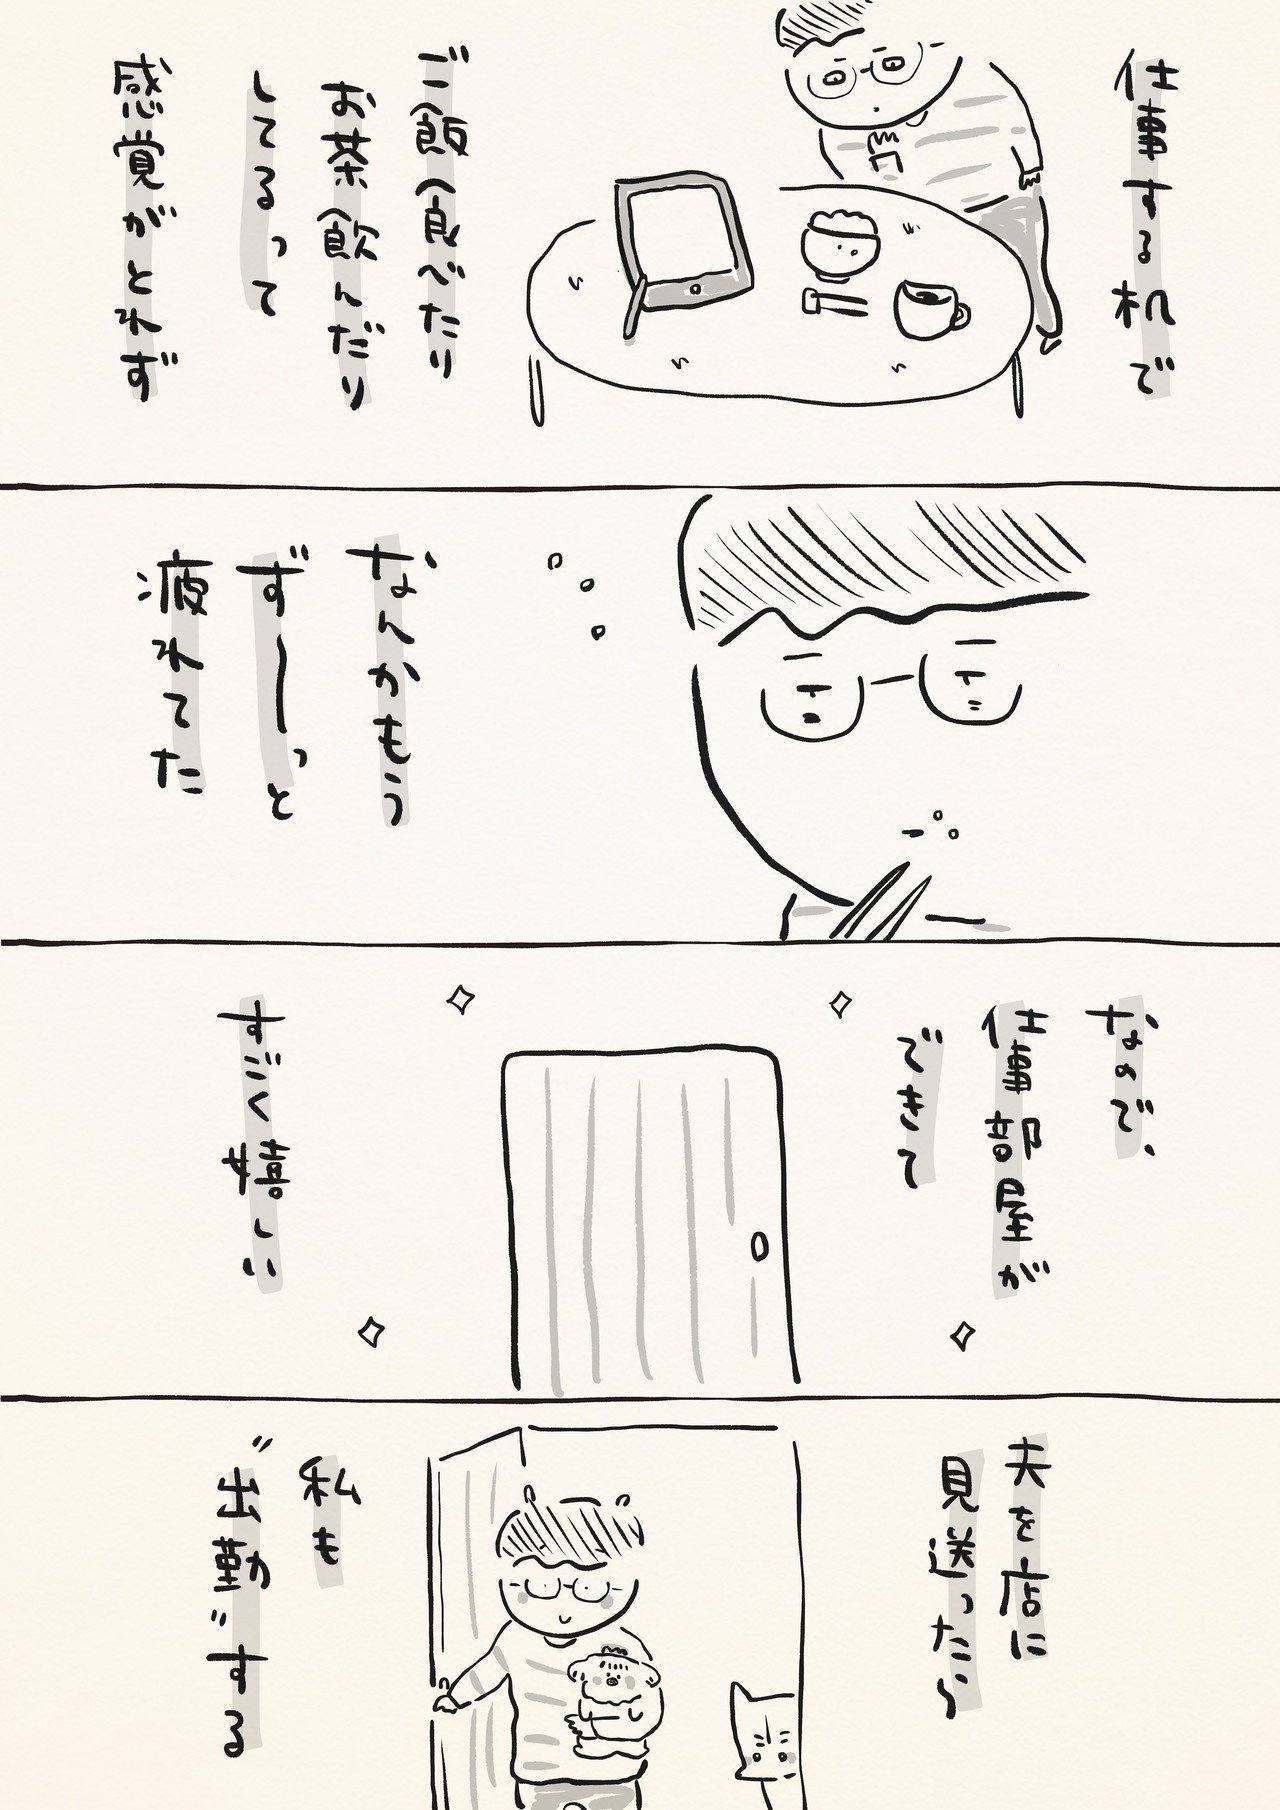 仕事する机で
ご飯食べたり
お茶飲んだり
してるって
感覚がとれず
なんかもう
ず〜っと
疲れてた
なので、
仕事部屋が
できて
すごく嬉しい
夫を店に
見送ったら
私も
"出勤"する